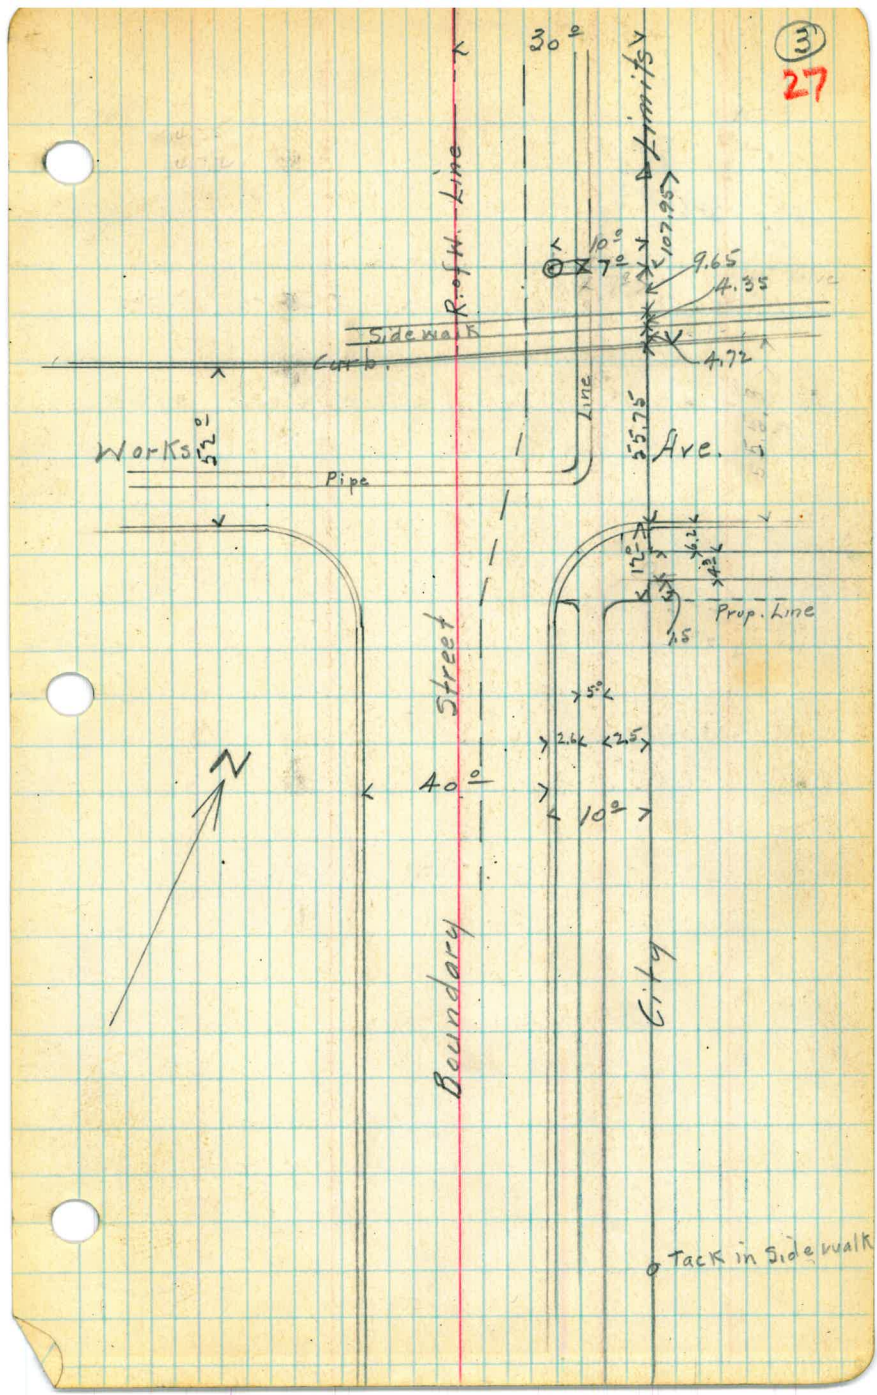 3
27
30º
R. of W. Line
Limits
107.95
10º
7º
9.65
4.35
Sidewalk
Curb.
4.72
Line
55.75
Works
52º
Ave.
Pipe
12º
6.2
4º
Prop. Line
1.5
Street
5º
2.6
2.5
N
40º
10º
Boundary
City
Tack in Sidewalk